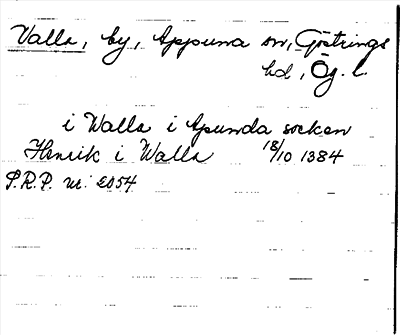 Valla, by, Appuna sn, Göstrings
hd, Ög. l.
i Walla i Apunda socken
Henrik i Walla 18/10 1384
S.R.P. nr: 2054